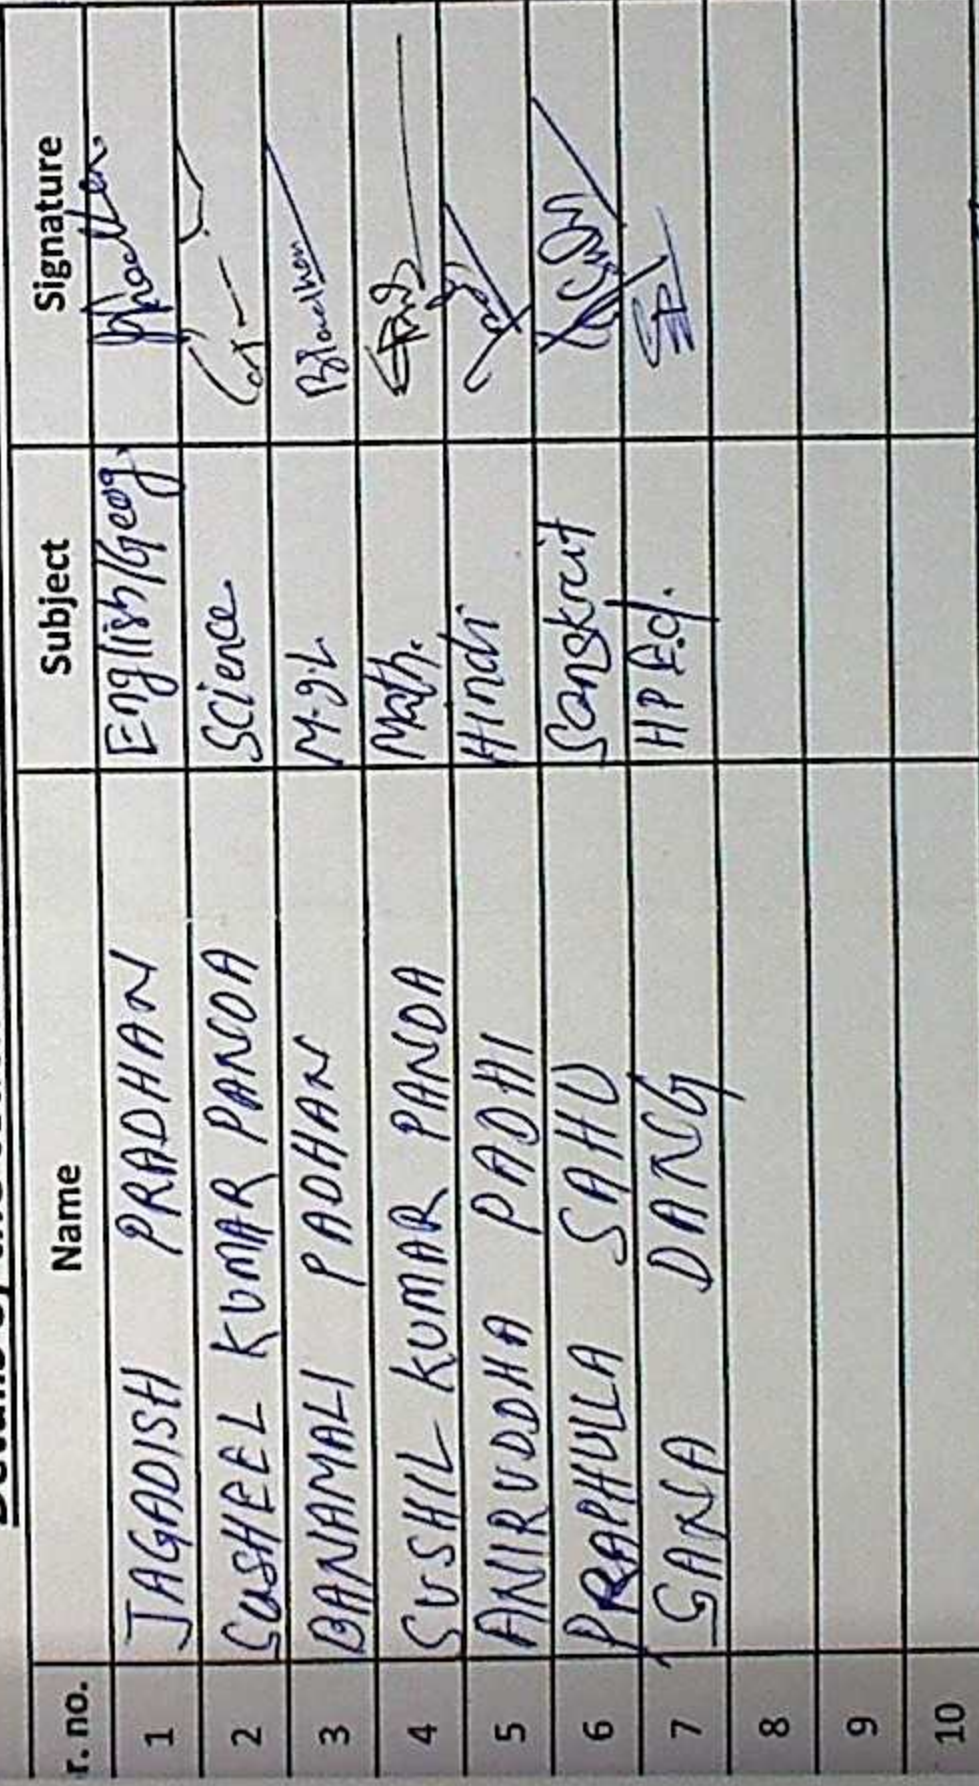 r. no. Name Subject Signature
1 JAGADISH PRADHAN English/Geog.
2 SUSHEEL KUMAR PANDA Science
3 BANAMALI PADHAN M.I.L
4 SUSHIL KUMAR PANDA Math.
5 ANIRUDDHA PADHI Hindi
6 PRAPHULLA SAHU Sanskrit
7 GANA DANG HP Ed.
8
9
10